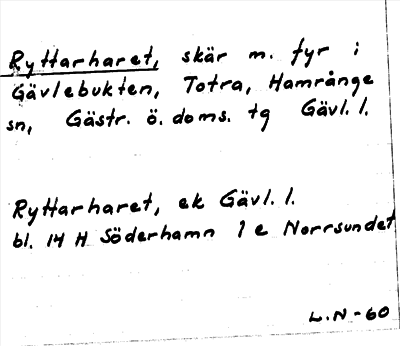 Ryttarharet, skär m. fyr i
Gävlebukten, Totra, Hamrånge
sn, Gästr. ö. doms. tg Gävl. l.
Ryttarharet, ek Gävl. l.
bl. 14 H Söderhamn 1 e Norrsundet
L.N-60